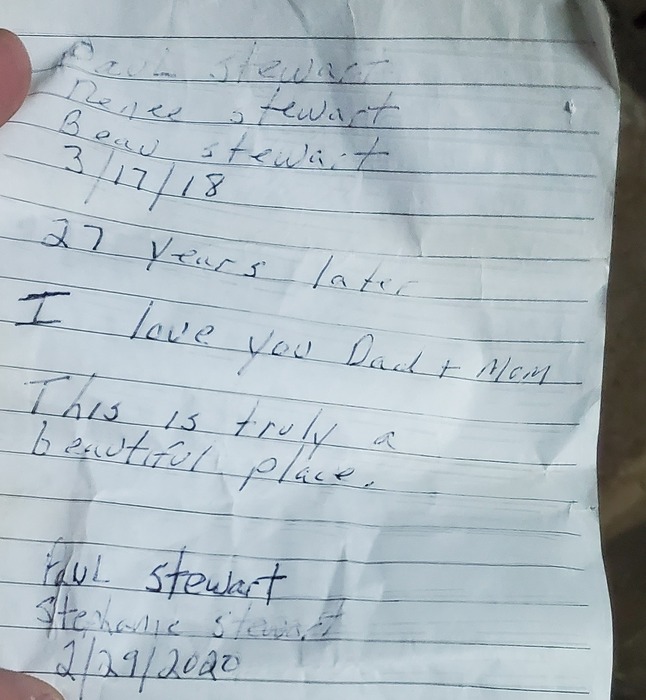 Paul stewart
Renee stewart
Beau stewart
3/17/18
27 years later
I love you Dad + Mom
This is truly a
beautiful place.
Paul stewart
Stephanie stewart
2/29/2020